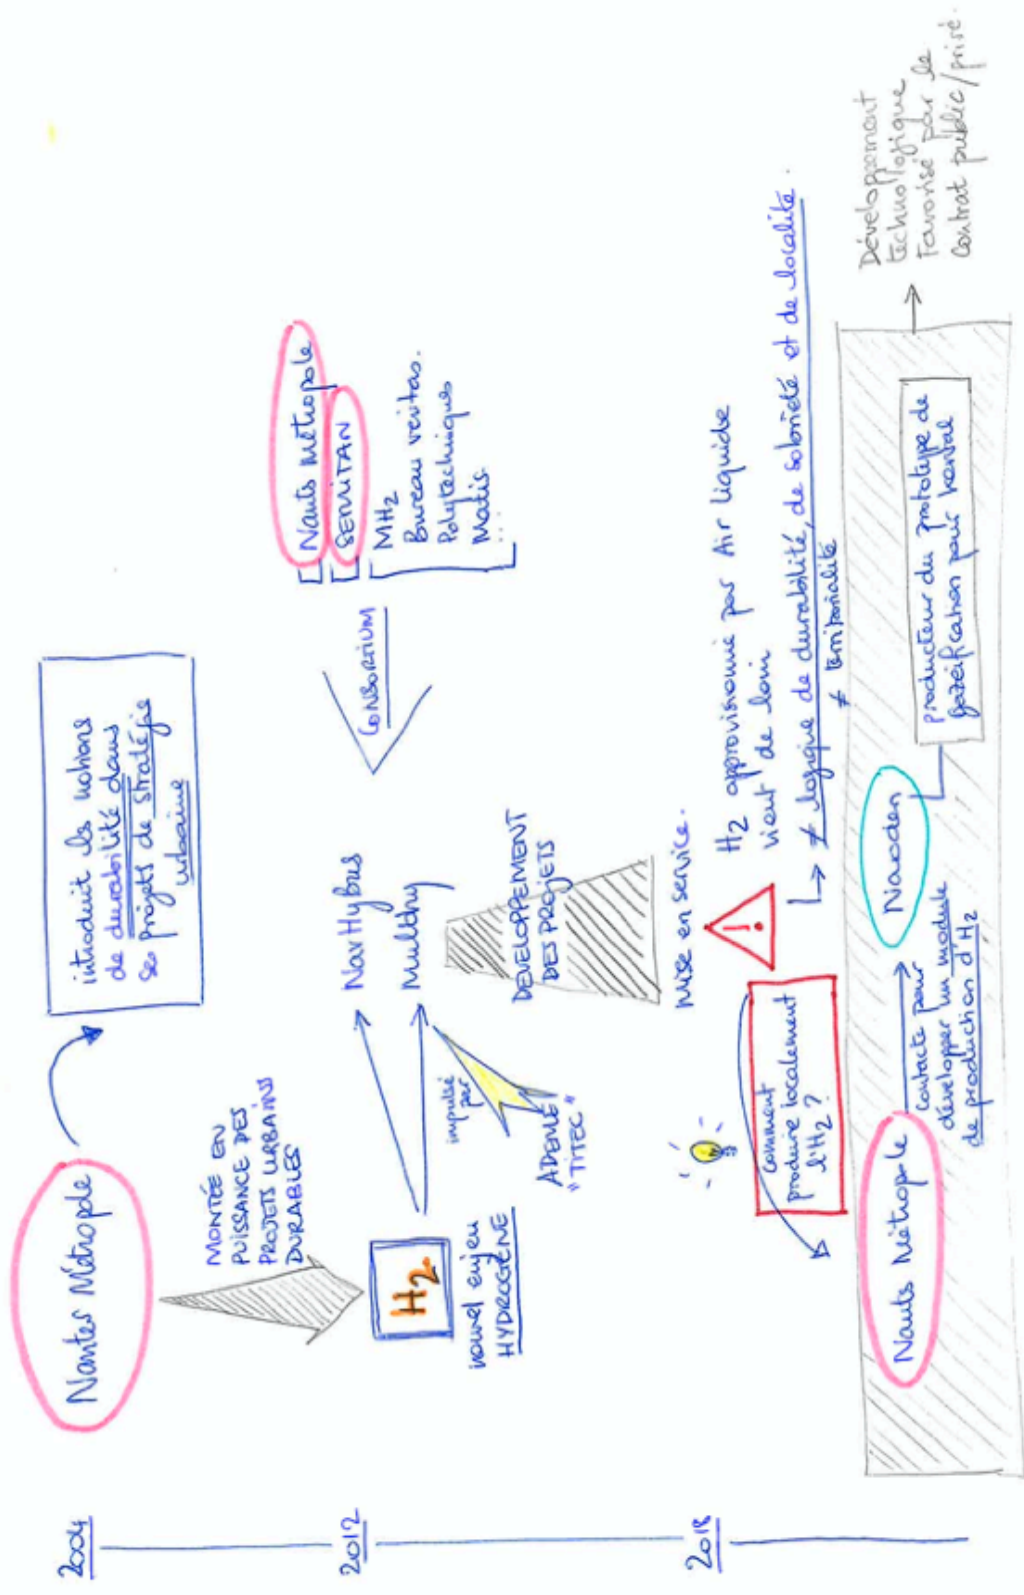 2004
Nantes Métropole
introduit les notions
de durabilité dans
ses projets de stratégie
urbaine
MONTÉE EN
PUISSANCE DES
PROJETS URBAINS
DURABLES
2012
H2
nouvel enjeu
HYDROGÈNE
NavHybus
Multhy
impulsé
par
ADEME
"TITEC"
CONSORTIUM
Nants Métropole
SEMITAN
MH2
Bureau veritas.
Polytechniques
Matis.
...
DEVELOPPEMENT
DES PROJETS
Mise en service.
2018
!
H2 approvisionné par Air Liquide
vient de loin
≠ logique de durabilité, de sobriété et de localité.
≠ territorialité
comment
produire localement
l'H2 ?
Nants Métropole
Contacte pour
développer un module
de production d'H2
Naoden
producteur du prototype de
gazéification pour
Développement
technologique
Favorisé par le
contrat public/privé.